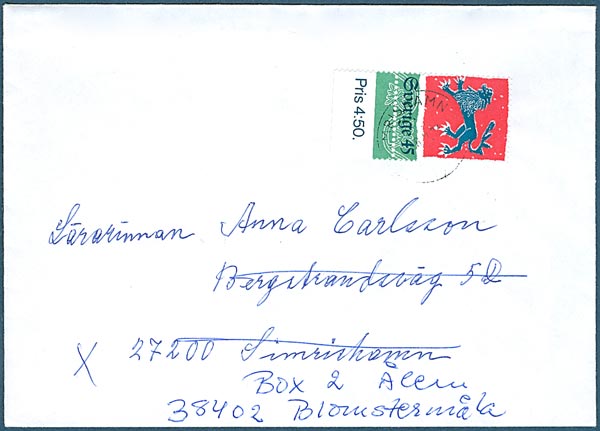 Pris 4:50.
Sverige 45
Lärarinnan Anna Carlsson
Bergstrandsväg 5D
X 27200 Simrishamn
Box 2 Ålem
38402 Blomstermåla